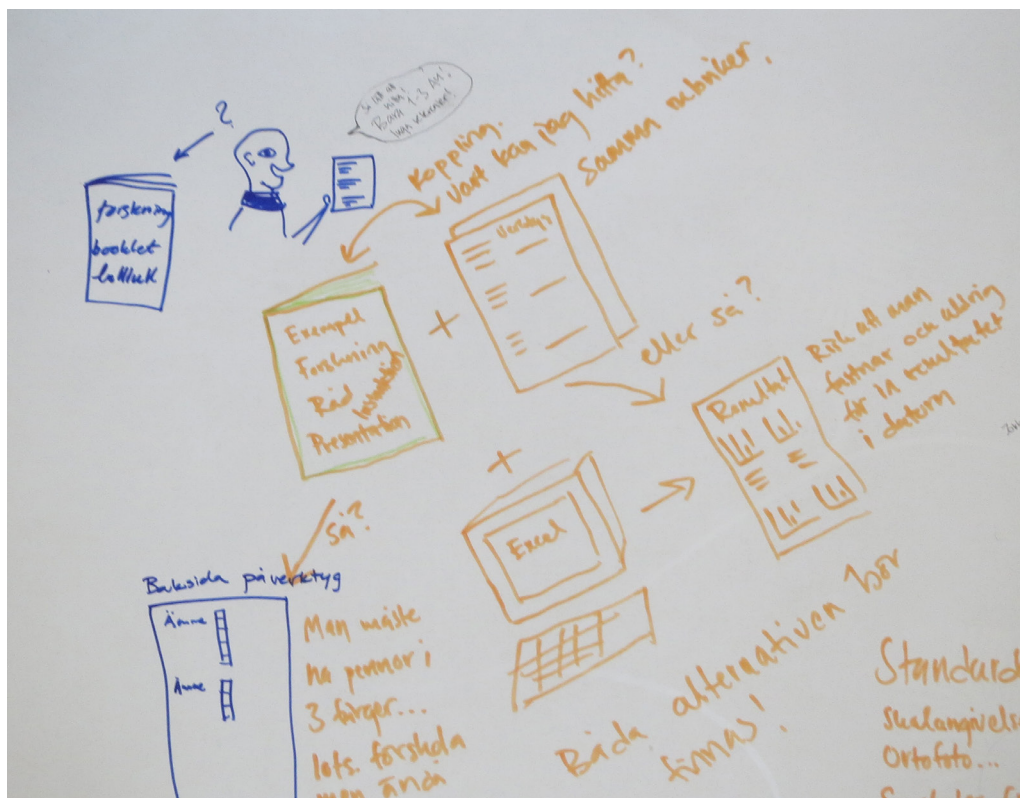 ?
forskning
booklet
Så lätt att
hitta!
Bara 1-3 A4!
Koppling.
Vart kan jag hitta?
Samma rubriker.
Verktyg
Exempel
Forskning
Råd
Instruktion
Presentation
+
eller så?
Resultat
Risk att man
fastnar och aldrig
för in resultatet
i datorn
+
Excel
så?
Baksida på verktyg
Ämne
Ämne
Man måste
ha pennor i
3 färger...
men ända
Båda alternativen bör
finnas!
Standard
Skalangivelse
Ortofoto...